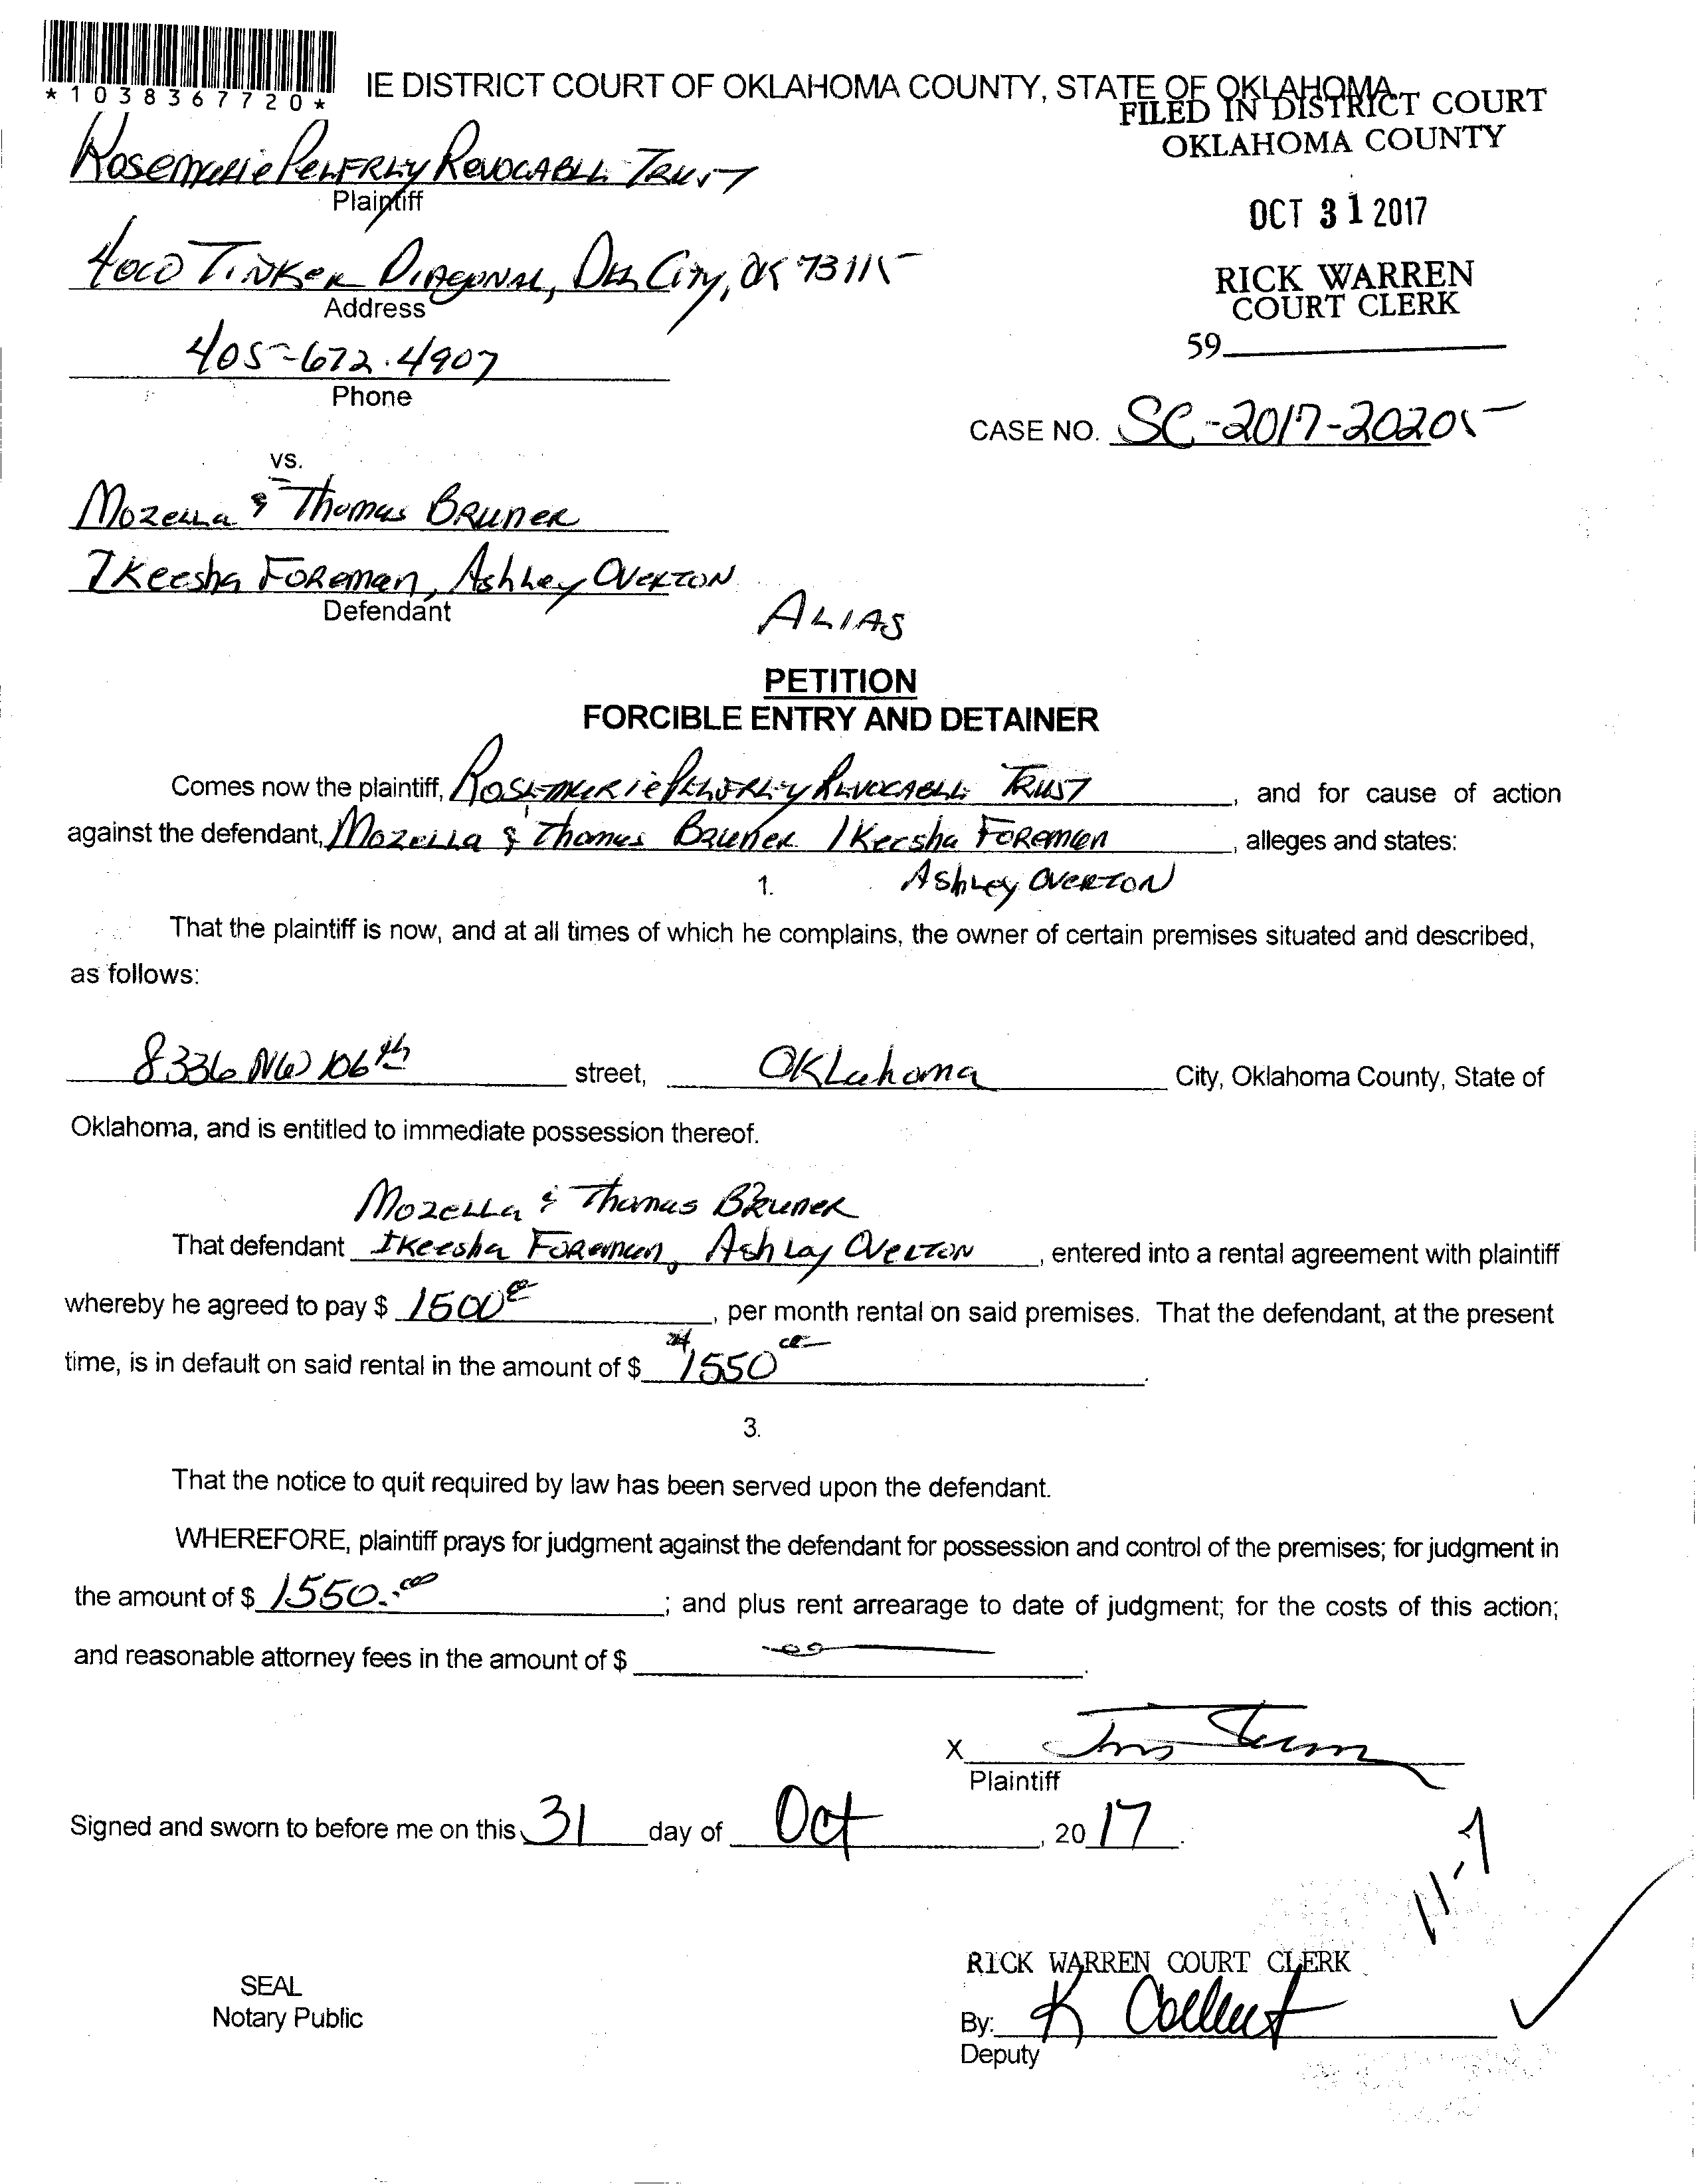 *1038367720*
IE DISTRICT COURT OF OKLAHOMA COUNTY, STATE OF OKLAHOMA
FILED IN DISTRICT COURT
OKLAHOMA COUNTY
Rosemarie Pelfrey Revocable Trust
Plaintiff
OCT 31 2017
4000 Tinker Diagonal, Del City, OK 73115
Address
RICK WARREN
COURT CLERK
59
405-672-4907
Phone
CASE NO. SC-2017-20205
vs.
Mozella & Thomas Bruner
IKeesha Foreman, Ashley Overton
Defendant
ALIAS
PETITION
FORCIBLE ENTRY AND DETAINER
Comes now the plaintiff, Rosemarie Pelfrey Revocable Trust, and for cause of action
against the defendant, Mozella & Thomas Bruner IKeesha Foreman, alleges and states:
1. Ashley Overton
That the plaintiff is now, and at all times of which he complains, the owner of certain premises situated and described,
as follows:
8336 NW 106th street, Oklahoma City, Oklahoma County, State of
Oklahoma, and is entitled to immediate possession thereof.
Mozella & Thomas Bruner
That defendant IKeesha Foreman, Ashley Overton, entered into a rental agreement with plaintiff
whereby he agreed to pay $ 1500, per month rental on said premises. That the defendant, at the present
time, is in default on said rental in the amount of $ 1550.
3.
That the notice to quit required by law has been served upon the defendant.
WHEREFORE, plaintiff prays for judgment against the defendant for possession and control of the premises; for judgment in
the amount of $ 1550.00; and plus rent arrearage to date of judgment; for the costs of this action;
and reasonable attorney fees in the amount of $
X
Plaintiff
Signed and sworn to before me on this 31 day of Oct, 2017.
11-7
RICK WARREN COURT CLERK
SEAL
Notary Public
By: K
Deputy